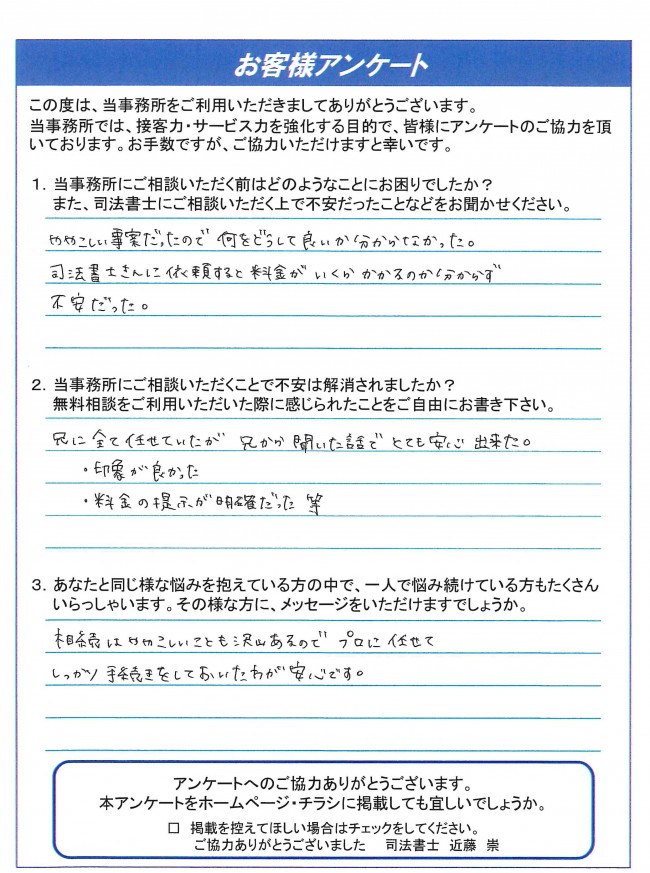 お客様アンケート
この度は、当事務所をご利用いただきましてありがとうございます。
当事務所では、接客力・サービス力を強化する目的で、皆様にアンケートのご協力を頂
いております。お手数ですが、ご協力いただけますと幸いです。
1．当事務所にご相談いただく前はどのようなことにお困りでしたか？
また、司法書士にご相談いただく上で不安だったことなどをお聞かせください。
ややこしい事案だったので 何をどうして良いか分からなかった。
司法書士さんに依頼すると料金が いくら かかるのか分からず
不安だった。
2．当事務所にご相談いただくことで不安は解消されましたか？
無料相談をご利用いただいた際に感じられたことをご自由にお書き下さい。
兄に全て任せていたが 兄から聞いた話で とても安心 出来た。
・印象が良かった
・料金の提示が明確だった 等
3．あなたと同じ様な悩みを抱えている方の中で、一人で悩み続けている方もたくさん
いらっしゃいます。その様な方に、メッセージをいただけますでしょうか。
相続はややこしいことも沢山あるので プロに任せて
しっかり手続きをしておいたわが安心です。
アンケートへのご協力ありがとうございます。
本アンケートをホームページ・チラシに掲載しても宜しいでしょうか。
□ 掲載を控えてほしい場合はチェックをしてください。
ご協力ありがとうございました 司法書士 近藤 崇